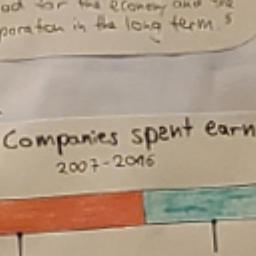 ad for the economy and the
poration in the long term. 5
Companies spent earn
2007-2016